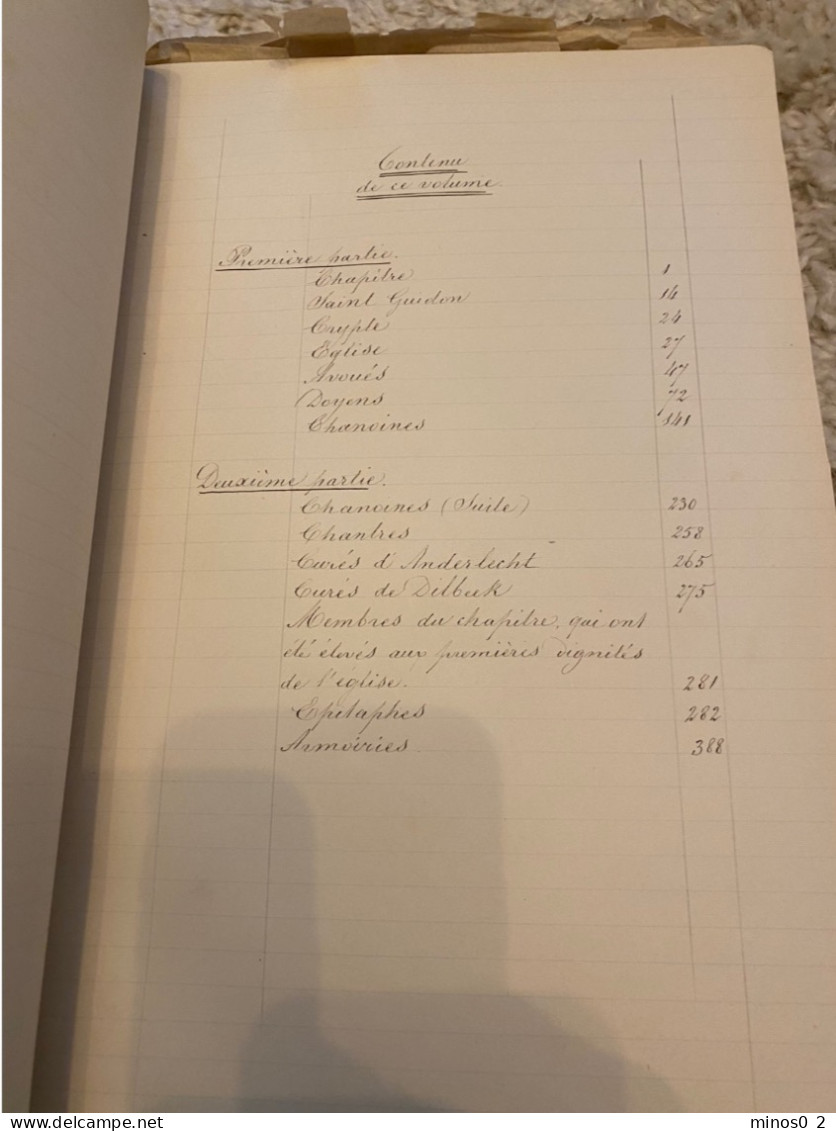 Contenu
de ce volume.
Première partie.
Chapître 1
Saint Guidon 14
Crypte 24
Eglise 27
Avoués 47
Doyens 72
Chanoines 141
Deuxième partie.
Chanoines (Suite) 230
Chantres 258
Curés d'Anderlecht 265
Curés de Dilbeek 275
Membres du chapitre, qui ont
été élevés aux premières dignités
de l'église. 281
Epitaphes 282
Armoiries 388
minos0_2